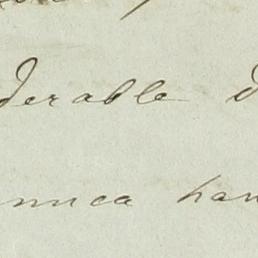 derable d
nunca han